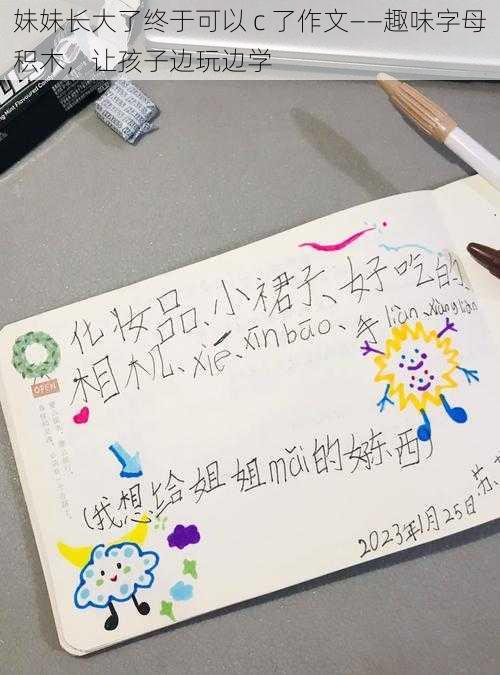 妹妹长大了终于可以 c 了作文——趣味字母
积木，让孩子边玩边学
化妆品、小裙子、好吃的、
相机、xié、xīn bāo、手liàn、xiàng liàn
OPEN
(我想给姐姐mǎi的好东西)
2023年1月25日